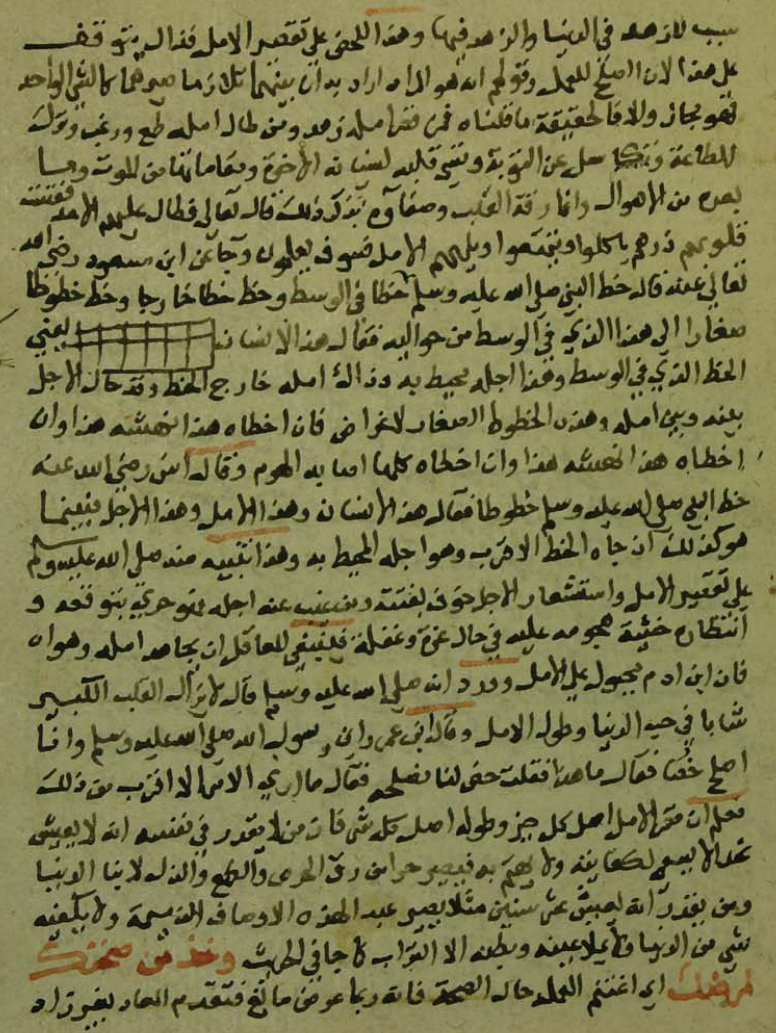 سبب للزهد في الدنيا والزهد فيها وهذا اللحض على تقصير الامل فذاك يتوقف
على هذا لان المصلح للعمل وقولهم انه هو الزاه اراد به ان بينهما تلازما صيرهما كالشي الواحد
فهو مجاز والا فالحقيقة ما قلناه فمن قصر امله زهد ومن طال امله طمع ورغب وترك
للطاعة وتكاسل عن التوبة وقسي قلبه لنسيانه الاخرة ومقاماتها من الموت وما
بعده من الاهوال وانما رقة القلب وصفاؤه بذكر ذلك قال تعالى فطال عليهم الامد فقست
قلوبهم ذرهم ياكلوا ويتمتعوا ويلههم الامل فسوف يعلمون وجا عن ابن مسعود رضي الله
تعالى عنه قال خط النبي صلى الله عليه وسلم خطا في الوسط وخط خطا خارجا وخط خطوطا
صغارا الى هذا الذي في الوسط من حواليه فقال هذا الانسان يعني
الخط الذي في الوسط وهذا اجله محيط به وذاك امله خارج الخط وقد حال الاجل
بينه وبين امله وهذه الخطوط الصغار الاغراض فان اخطاه هذا نهشه هذا وان
اخطاه هذا نهشه هذا وان اخطاه كلها اصابه الهرم وقال انس رضي الله عنه
خط النبي صلى الله عليه وسلم خطوطا فقال هذا الانسان وهذا الامل وهذا الاجل فبينما
هو كذلك ان جاه الخط الاقرب وهو اجله المحيط به وهذا تنبيه منه صلى الله عليه وسلم
على تقصير الامل واستشعار الاجل خوف بغتته ومن غيب عنه اجله فهو حري بتوقعه و
انتظاره خشية هجومه عليه في حال غرة وغفلة فينبغي للعاقل ان يجاهد امله وهواه
فان ابن ادم مجبول على الامل وورد انه صلى الله عليه وسلم قال لا يزال القلب الكبير
شابا في حب الدنيا وطول الامل وقال ابن عمر راني رسول الله صلى الله عليه وسلم وانا
اصلح خصا فقال ما هذا فقلت خص لنا نصلحه فقال ما ارى الامر الا اقرب من ذلك
فعلم ان قصر الامل اصل كل خير وطوله اصل كل شر فان من لا يقدر في نفسه انه لا يعيش
غدا لا يسعى لكفايته ولا يهتم به فيصير حرا من رق الحرص والطمع والذل لابنا الدنيا
ومن يقدر انه يعيش عشر سنين مثلا يصير عبد الهذه الاوصاف الذميمة ولا يكفيه
شي من الدنيا ولا يملا عينه وبطنه الا التراب كما جا في الحديث وخذ من صحتك
لمرضك اي اغتنم العمل حال الصحة فانه ربما عرض مانع فتقدم المعاد بغير زاد